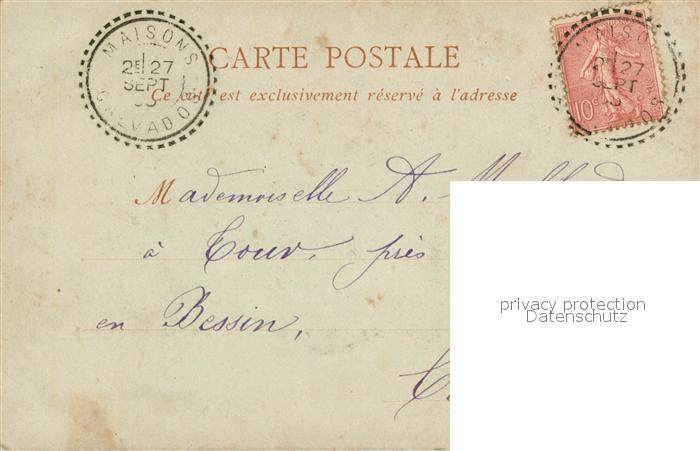 MAISONS
2E 27
SEPT
CALVADOS
CARTE POSTALE
Ce côté est exclusivement réservé à l'adresse
10c
MAISO
27
SEPT
Mademoiselle A.
à Tour, près
en Bessin,
privacy protection
Datenschutz